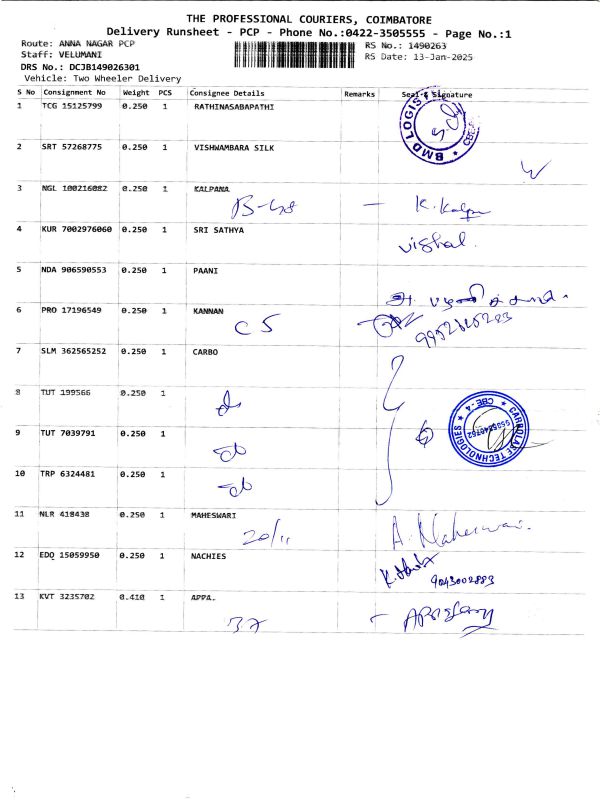 THE PROFESSIONAL COURIERS, COIMBATORE
Delivery Runsheet - PCP - Phone No.:0422-3505555 - Page No.:1
Route: ANNA NAGAR PCP
RS No.: 1490263
Staff: VELUMANI
RS Date: 13-Jan-2025
DRS No.: DCJB149026301
Vehicle: Two Wheeler Delivery
S No Consignment No Weight PCS Consignee Details Remarks Seal & Signature
1 TCG 15125799 0.250 1 RATHINASABAPATHI
BMD LOGIS
2 SRT 57268775 0.250 1 VISHWAMBARA SILK
3 NGL 100216082 0.250 1 KALPANA
K. Kalpa
4 KUR 7002976060 0.250 1 SRI SATHYA
Vishal.
5 NDA 906590553 0.250 1 PAANI
6 PRO 17196549 0.250 1 KANNAN
C 5
7 SLM 362565252 0.250 1 CARBO
8 TUT 199566 0.250 1
CARBOLASE TECHNOLOGIES ★ CBE-4 ★
9 TUT 7039791 0.250 1
10 TRP 6324481 0.250 1
11 NLR 418438 0.250 1 MAHESWARI
20/11 A. Maheswari.
12 EDQ 15059950 0.250 1 NACHIES
9043002883
13 KVT 3235702 0.410 1 APPA.
37